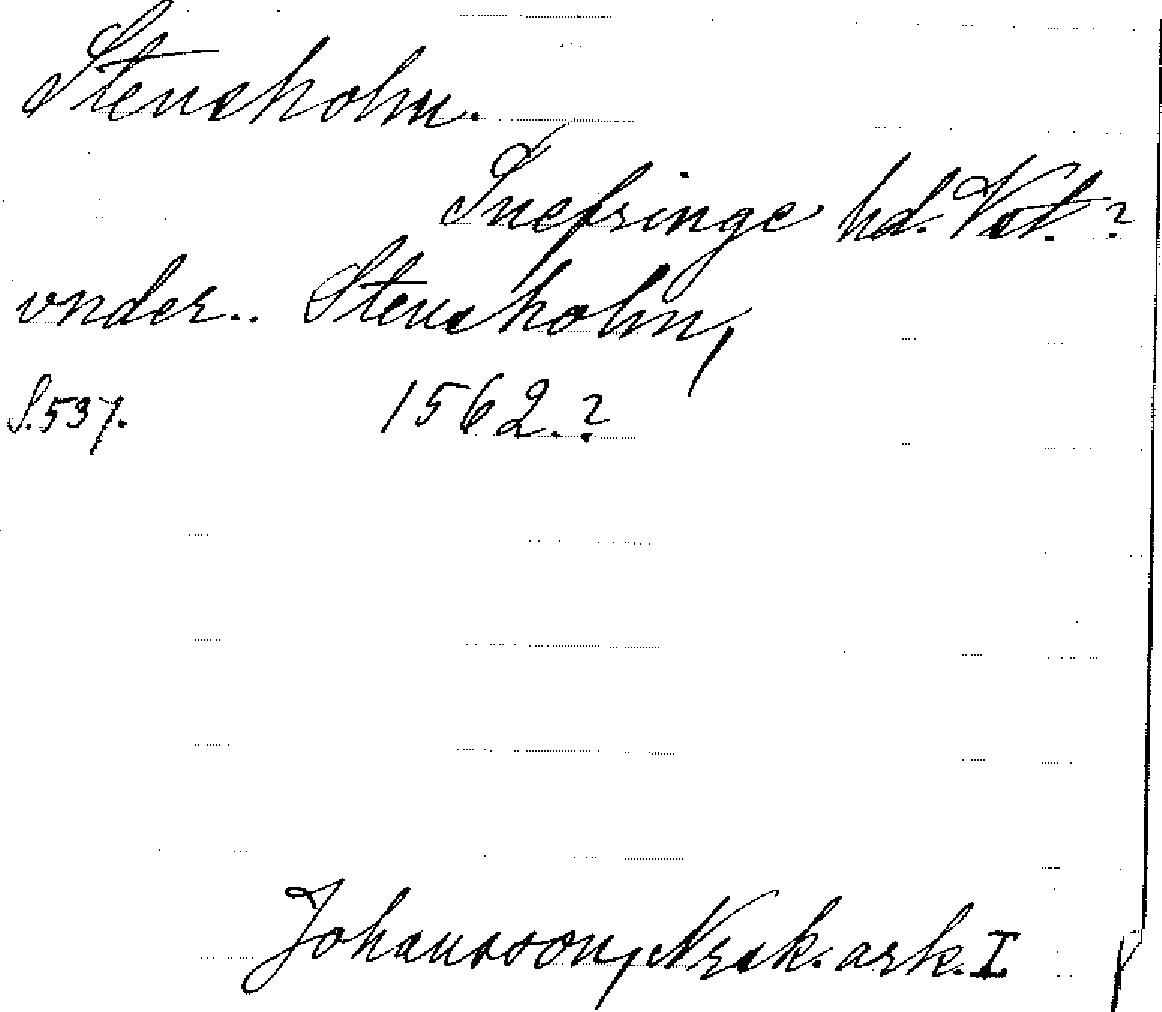 Stensholm.
Snefringe hd. Vst. ?
vnder.. Stensholm,
S. 537. 1562. ?
Johansson, Nrsk. ark. I